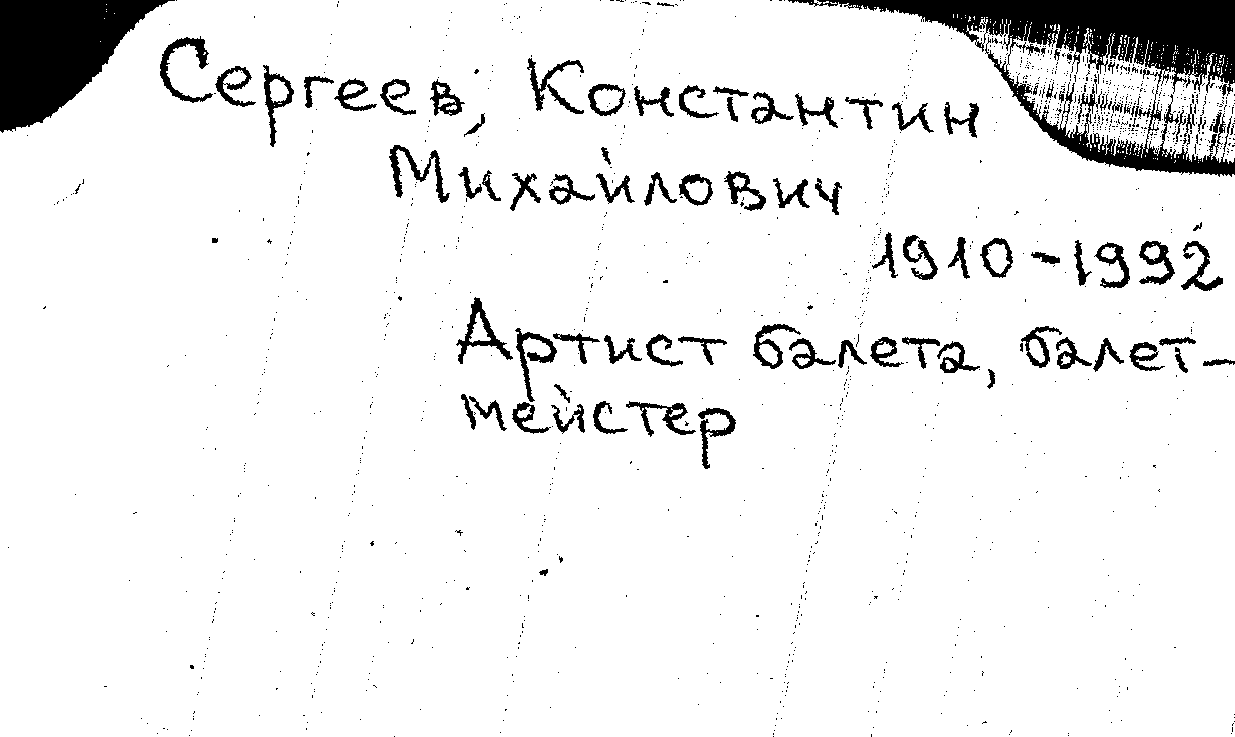 Сергеев, Константин
Михайлович
1910-1992
Артист балета, балет-
мейстер